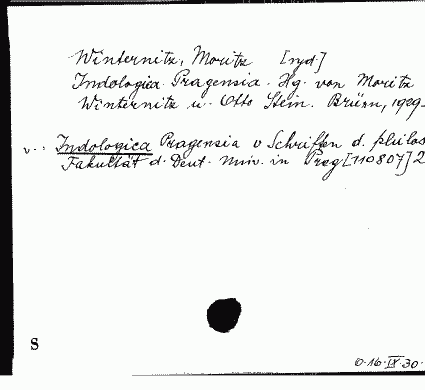 Winternitz, Moritz [wyd.]
Indologica Pragensia. Hg. von Moritz
Winternitz u. Otto Stein. Brünn, 1929
v.: Indologica Pragensia v Schriften d. philos
Fakultät d. Deut. Univ. in Prag [110807] 2
S
0.16.IX.30.